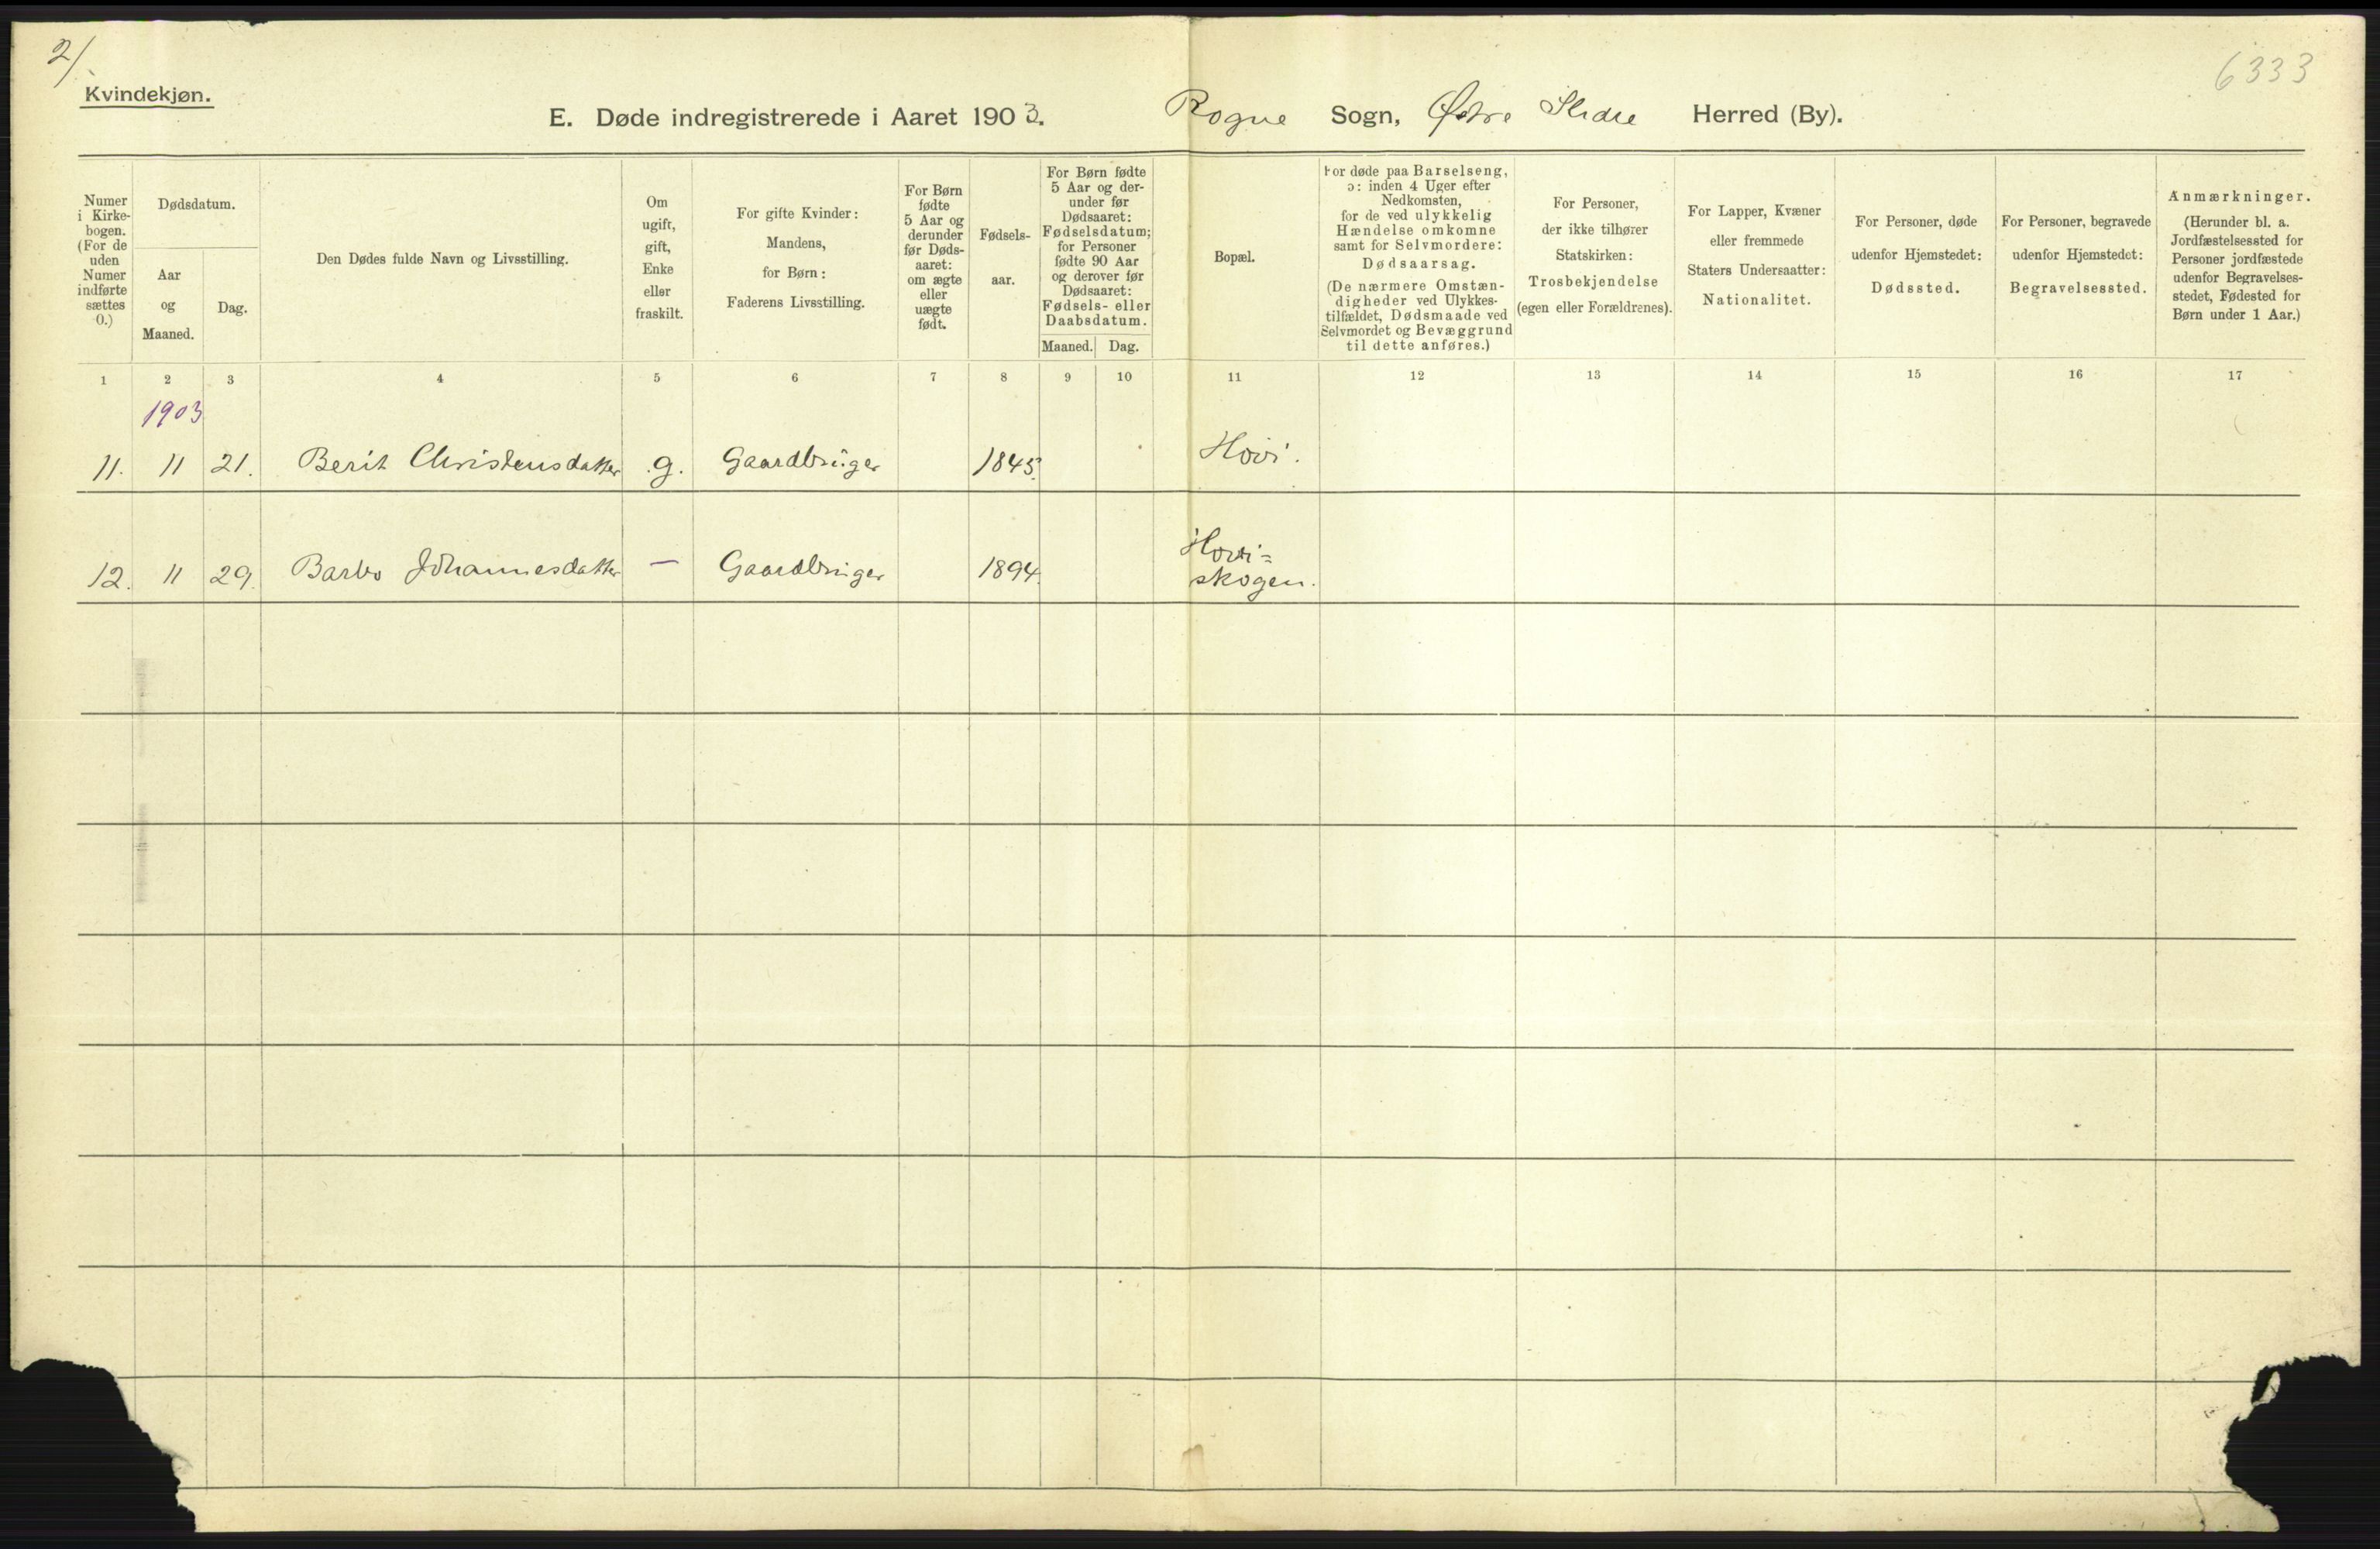 2/
6333
Kvindekjøn.
E. Døde indregistrerede i Aaret 1903. Rogne Sogn, Østre Slidre Herred (By).
Numer i Kirke-bogen. (For de uden Numer indførte sættes 0.)
Dødsdatum.
Aar og Maaned.
Dag.
Den Dødes fulde Navn og Livsstilling.
Om ugift, gift, Enke eller fraskilt.
For gifte Kvinder: Mandens, for Børn: Faderens Livsstilling.
For Børn fødte 5 Aar og derunder før Døds-aaret: om ægte eller uægte født.
Fødsels-aar.
For Børn fødte 5 Aar og der-under før Dødsaaret: Fødselsdatum; for Personer fødte 90 Aar og derover før Dødsaaret: Fødsels- eller Daabsdatum.
Maaned. Dag.
Bopæl.
For døde paa Barselseng, ɔ: inden 4 Uger efter Nedkomsten, for de ved ulykkelig Hændelse omkomne samt for Selvmordere: Dødsaarsag. (De nærmere Omstæn-digheder ved Ulykkes-tilfældet, Dødsmaade ved Selvmordet og Bevæggrund til dette anføres.)
For Personer, der ikke tilhører Statskirken: Trosbekjendelse (egen eller Forældrenes).
For Lapper, Kvæner eller fremmede Staters Undersaatter: Nationalitet.
For Personer, døde udenfor Hjemstedet: Dødssted.
For Personer, begravede udenfor Hjemstedet: Begravelsessted.
Anmærkninger. (Herunder bl. a. Jordfæstelsessted for Personer jordfæstede udenfor Begravelses-stedet, Fødested for Børn under 1 Aar.)
1 2 3 4 5 6 7 8 9 10 11 12 13 14 15 16 17
1903
11. 11 21. Berit Christensdatter g. Gaardbruger 1845. Hovi.
12. 11 29. Barbo Johannesdatter — Gaardbruger 1894. Hovi=
skogen.